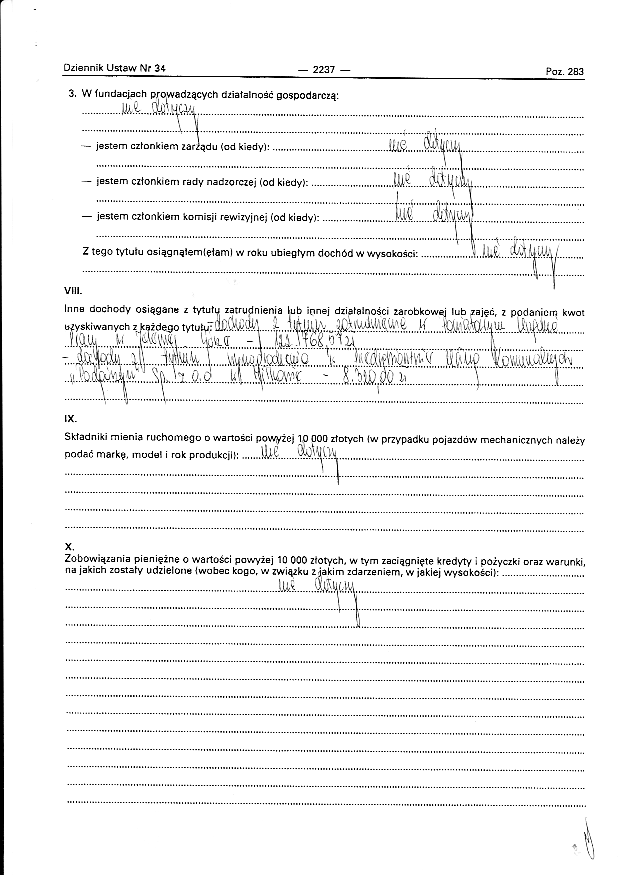 Dziennik Ustaw Nr 34 — 2237 — Poz. 283
3. W fundacjach prowadzących działalność gospodarczą:
nie dotyczy
— jestem członkiem zarządu (od kiedy): nie dotyczy
— jestem członkiem rady nadzorczej (od kiedy): nie dotyczy
— jestem członkiem komisji rewizyjnej (od kiedy): nie dotyczy
Z tego tytułu osiągnąłem(ęłam) w roku ubiegłym dochód w wysokości: nie dotyczy
VIII.
Inne dochody osiągane z tytułu zatrudnienia lub innej działalności zarobkowej lub zajęć, z podaniem kwot
uzyskiwanych z każdego tytułu: dochody z tytułu zatrudnienia w Powiatowym Urzędzie
Pracy w Jeleniej Górze -
- dochody z tytułu
Sp. z o.o. w - 8.320,00 zł
IX.
Składniki mienia ruchomego o wartości powyżej 10 000 złotych (w przypadku pojazdów mechanicznych należy
podać markę, model i rok produkcji): nie dotyczy
X.
Zobowiązania pieniężne o wartości powyżej 10 000 złotych, w tym zaciągnięte kredyty i pożyczki oraz warunki,
na jakich zostały udzielone (wobec kogo, w związku z jakim zdarzeniem, w jakiej wysokości):
nie dotyczy